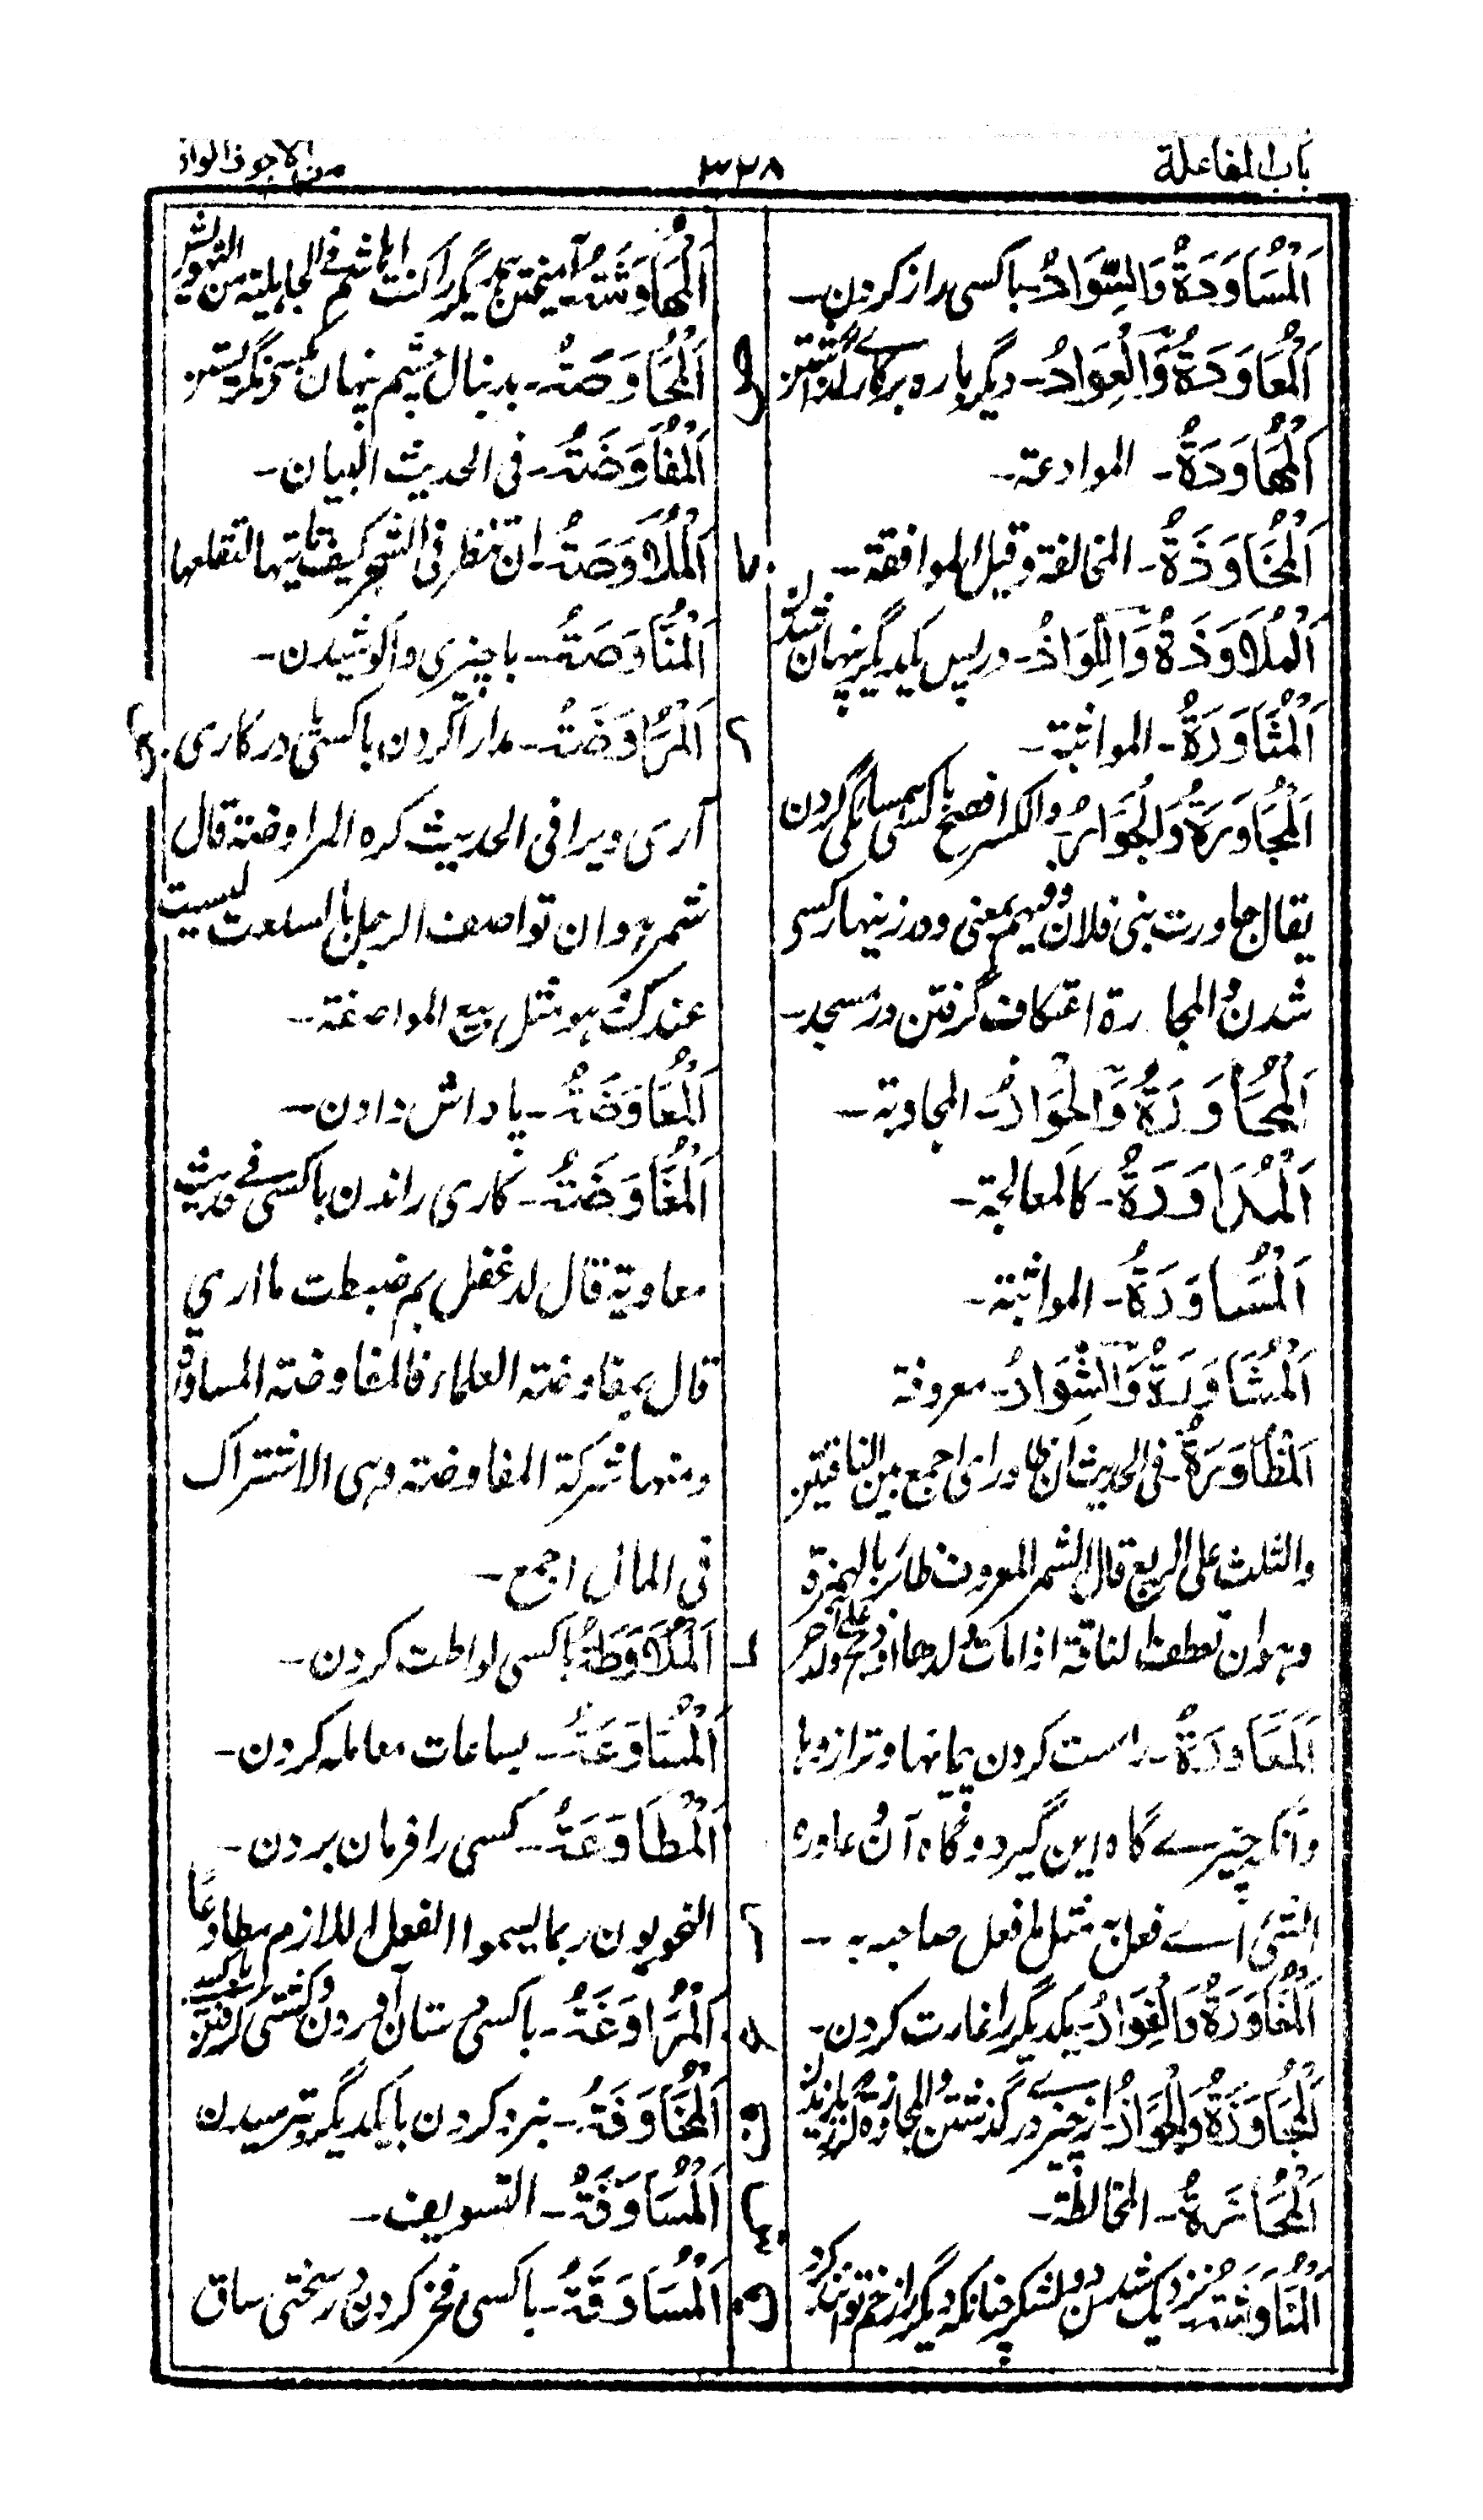 باب المفاعلة
۳۲۸
من الاجوف الواو
اَلْمُسَاوَدَةُ وَالسِّوَادُ۔ باکسی راز کردن۔
اَلْمُعَاوَدَةُ وَالْعِوَادُ۔ دیگر بارہ برکارے گشتن
اَلْمُهَاوَدَةُ۔ الموادعة۔
اَلْمُخَاوَذَةُ۔ المخالفة وقیل الموافقة۔
اَلْمُلَاوَذَةُ وَاللِّوَاذُ۔ درپس یکدیگر پنهان شدن
اَلْمُثَاوَرَةُ۔ المواثبة۔
اَلْمُجَاوَرَةُ وَالْجِوَارُ۔ والکسر افصح باکسی همسایگی کردن
یقال جاورت بنی فلان وفیهم بمعنی ودر زینهار کسی
شدن والمجا رة اعتکاف گرفتن در مسجد۔
اَلْمُحَاوَرَةُ وَالْحِوَارُ۔ المجاوبة۔
اَلْمُدَاوَرَةُ۔ کالمعالجة۔
اَلْمُسَاوَرَةُ۔ المواثبة۔
اَلْمُشَاوَرَةُ وَالشِّوَارُ۔ معروفة
اَلْمُظَاوَرَةُ۔ فی الحدیث انه ظاور ای اجمع بین الناقتین
والثلث علی الربع قال الشمر المعروف ظائر بالهمزة
وهو ان تعطف الناقة اذا مات ولدها او ذبح علی ولد آخر
اَلْمُعَاوَرَةُ۔ راست کردن پیمانها وترازوها
وآنکه چیزے گاه این گیرد وگاه آن عاوره
الشئ اے فعل به مثل ما فعل صاحبه به ۔
اَلْمُغَاوَرَةُ وَالْغِوَارُ۔ یکدیگر را غارت کردن۔
اَلْمُجَاوَزَةُ وَالْجِوَازُ۔ از چیزے درگذشتن والمجاوزة
اَلْمُحَاشَرَةُ۔ المخالطة۔
اَلْمُنَاوَشَةُ۔ نزدیک شدن دو لشکر چنانکه دیگر را زخم توانند کرد
اَلْمُهَاوَشَةُ۔ آمیختن بهم دیگر را کنت اهاشهم فی الجاهلیة من التهویش
اَلْمُحَاوَصَةُ۔ بدنبال چشم پنهان بکسی نگریستن
اَلْمُفَاوَصَةُ۔ فی الحدیث البیان۔
اَلْمُلَاوَصَةُ۔ ان تنظر فی الشجر کیف تاتیها لتقلعها
اَلْمُنَاوَصَةُ۔ باچیزی واکوشیدن۔
اَلْمُرَاوَضَةُ۔ مدارا کردن باکسی تا در کاری
آری ویرا فی الحدیث کره المراوضة قال
شمر هو ان تواصف الرجل بالسلعة لیست
عندک هو مثل بیع المواصفة۔
اَلْمُعَاوَضَةُ۔ پاداش دادن۔
اَلْمُفَاوَضَةُ۔ کاری راندن باکسی فے حدیث
معاویة قال لدغفل بم ضبطت ما اری
قال بمفاوضة العلماء فالمفاوضة المساواة
ومنها شرکة المفاوضة وهی الاشتراک
فی المال اجمع۔
اَلْمُلَاوَطَةُ باکسی لواطت کردن۔
اَلْمُسَاوَعَةُ۔ بساعات معامله کردن۔
اَلْمُطَاوَعَةُ۔ کسی را فرمان بردن۔
النحویون ربما لیسموا الفعل اللازم مطاوعا
اَلْمُرَاوَغَةُ۔ باکسی ستان آوردن وکشتی گرفتن باکسے
اَلْمُخَاوَفَةُ۔ نبرد کردن بایکدیگر بترسیدن
اَلْمُسَاوَفَةُ۔ التسویف۔
اَلْمُسَاوَقَةُ۔ باکسی فخر کردن در سختی ساق